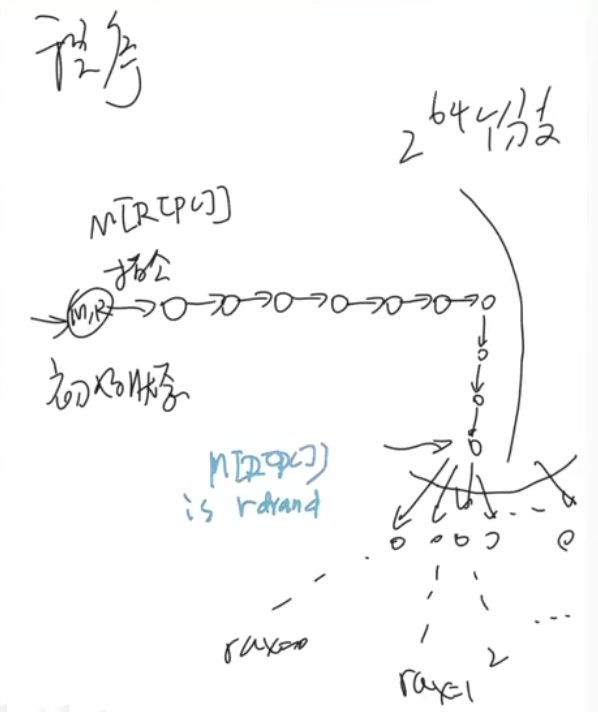 程序
2^64个分支
M[R[PC]]
指令
M,R
初始状态
M[R[PC]]
is rdrand
...
rax=0
rax=1
2
...